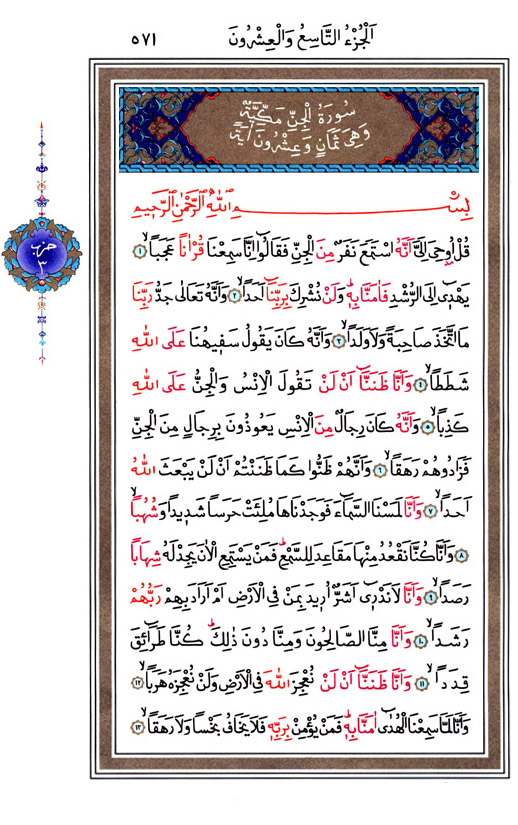 اَلْجُزْءُ التَّاسِعُ وَالْعِشْرُونَ
٥٧١
سُورَةُ الْجِنِّ مَكِّيَّةٌ
وَهِيَ ثَمَانٍ وَعِشْرُونَ اٰيَةً
حزب
٣
بِسْمِ اللّٰهِ الرَّحْمٰنِ الرَّحٖيمِ
قُلْ اُو۫حِيَ اِلَيَّ اَنَّهُ اسْتَمَعَ نَفَرٌ مِنَ الْجِنِّ فَقَالُٓوا اِنَّا سَمِعْنَا قُرْاٰنًا عَجَبًاۙ ﴿١﴾
يَهْدٖٓي اِلَى الرُّشْدِ فَاٰمَنَّا بِهٖؕ وَلَنْ نُشْرِكَ بِرَبِّنَٓا اَحَدًاۙ ﴿٢﴾ وَاَنَّهُ تَعَالٰى جَدُّ رَبِّنَا
مَا اتَّخَذَ صَاحِبَةً وَلَا وَلَدًاۙ ﴿٣﴾ وَاَنَّهُ كَانَ يَقُولُ سَفٖيهُنَا عَلَى اللّٰهِ
شَطَطًاۙ ﴿٤﴾ وَاَنَّا ظَنَنَّٓا اَنْ لَنْ تَقُولَ الْاِنْسُ وَالْجِنُّ عَلَى اللّٰهِ
كَذِبًاۙ ﴿٥﴾ وَاَنَّهُ كَانَ رِجَالٌ مِنَ الْاِنْسِ يَعُوذُونَ بِرِجَالٍ مِنَ الْجِنِّ
فَزَادُوهُمْ رَهَقًاۙ ﴿٦﴾ وَاَنَّهُمْ ظَنُّوا كَمَا ظَنَنْتُمْ اَنْ لَنْ يَبْعَثَ اللّٰهُ
اَحَدًاۙ ﴿٧﴾ وَاَنَّا لَمَسْنَا السَّمَٓاءَ فَوَجَدْنَاهَا مُلِئَتْ حَرَسًا شَدٖيدًا وَشُهُبًاۙ
﴿٨﴾ وَاَنَّا كُنَّا نَقْعُدُ مِنْهَا مَقَاعِدَ لِلسَّمْعِؕ فَمَنْ يَسْتَمِعِ الْاٰنَ يَجِدْ لَهُ شِهَابًا
رَصَدًاۙ ﴿٩﴾ وَاَنَّا لَا نَدْرٖٓي اَشَرٌّ اُرٖيدَ بِمَنْ فِي الْاَرْضِ اَمْ اَرَادَ بِهِمْ رَبُّهُمْ
رَشَدًاۙ ﴿١٠﴾ وَاَنَّا مِنَّا الصَّالِحُونَ وَمِنَّا دُونَ ذٰلِكَؕ كُنَّا طَرَٓائِقَ
قِدَدًاۙ ﴿١١﴾ وَاَنَّا ظَنَنَّٓا اَنْ لَنْ نُعْجِزَ اللّٰهَ فِي الْاَرْضِ وَلَنْ نُعْجِزَهُ هَرَبًاۙ ﴿١٢﴾
وَاَنَّا لَمَّا سَمِعْنَا الْهُدٰٓى اٰمَنَّا بِهٖؕ فَمَنْ يُؤْمِنْ بِرَبِّهٖ فَلَا يَخَافُ بَخْسًا وَلَا رَهَقًاۙ ﴿١٣﴾